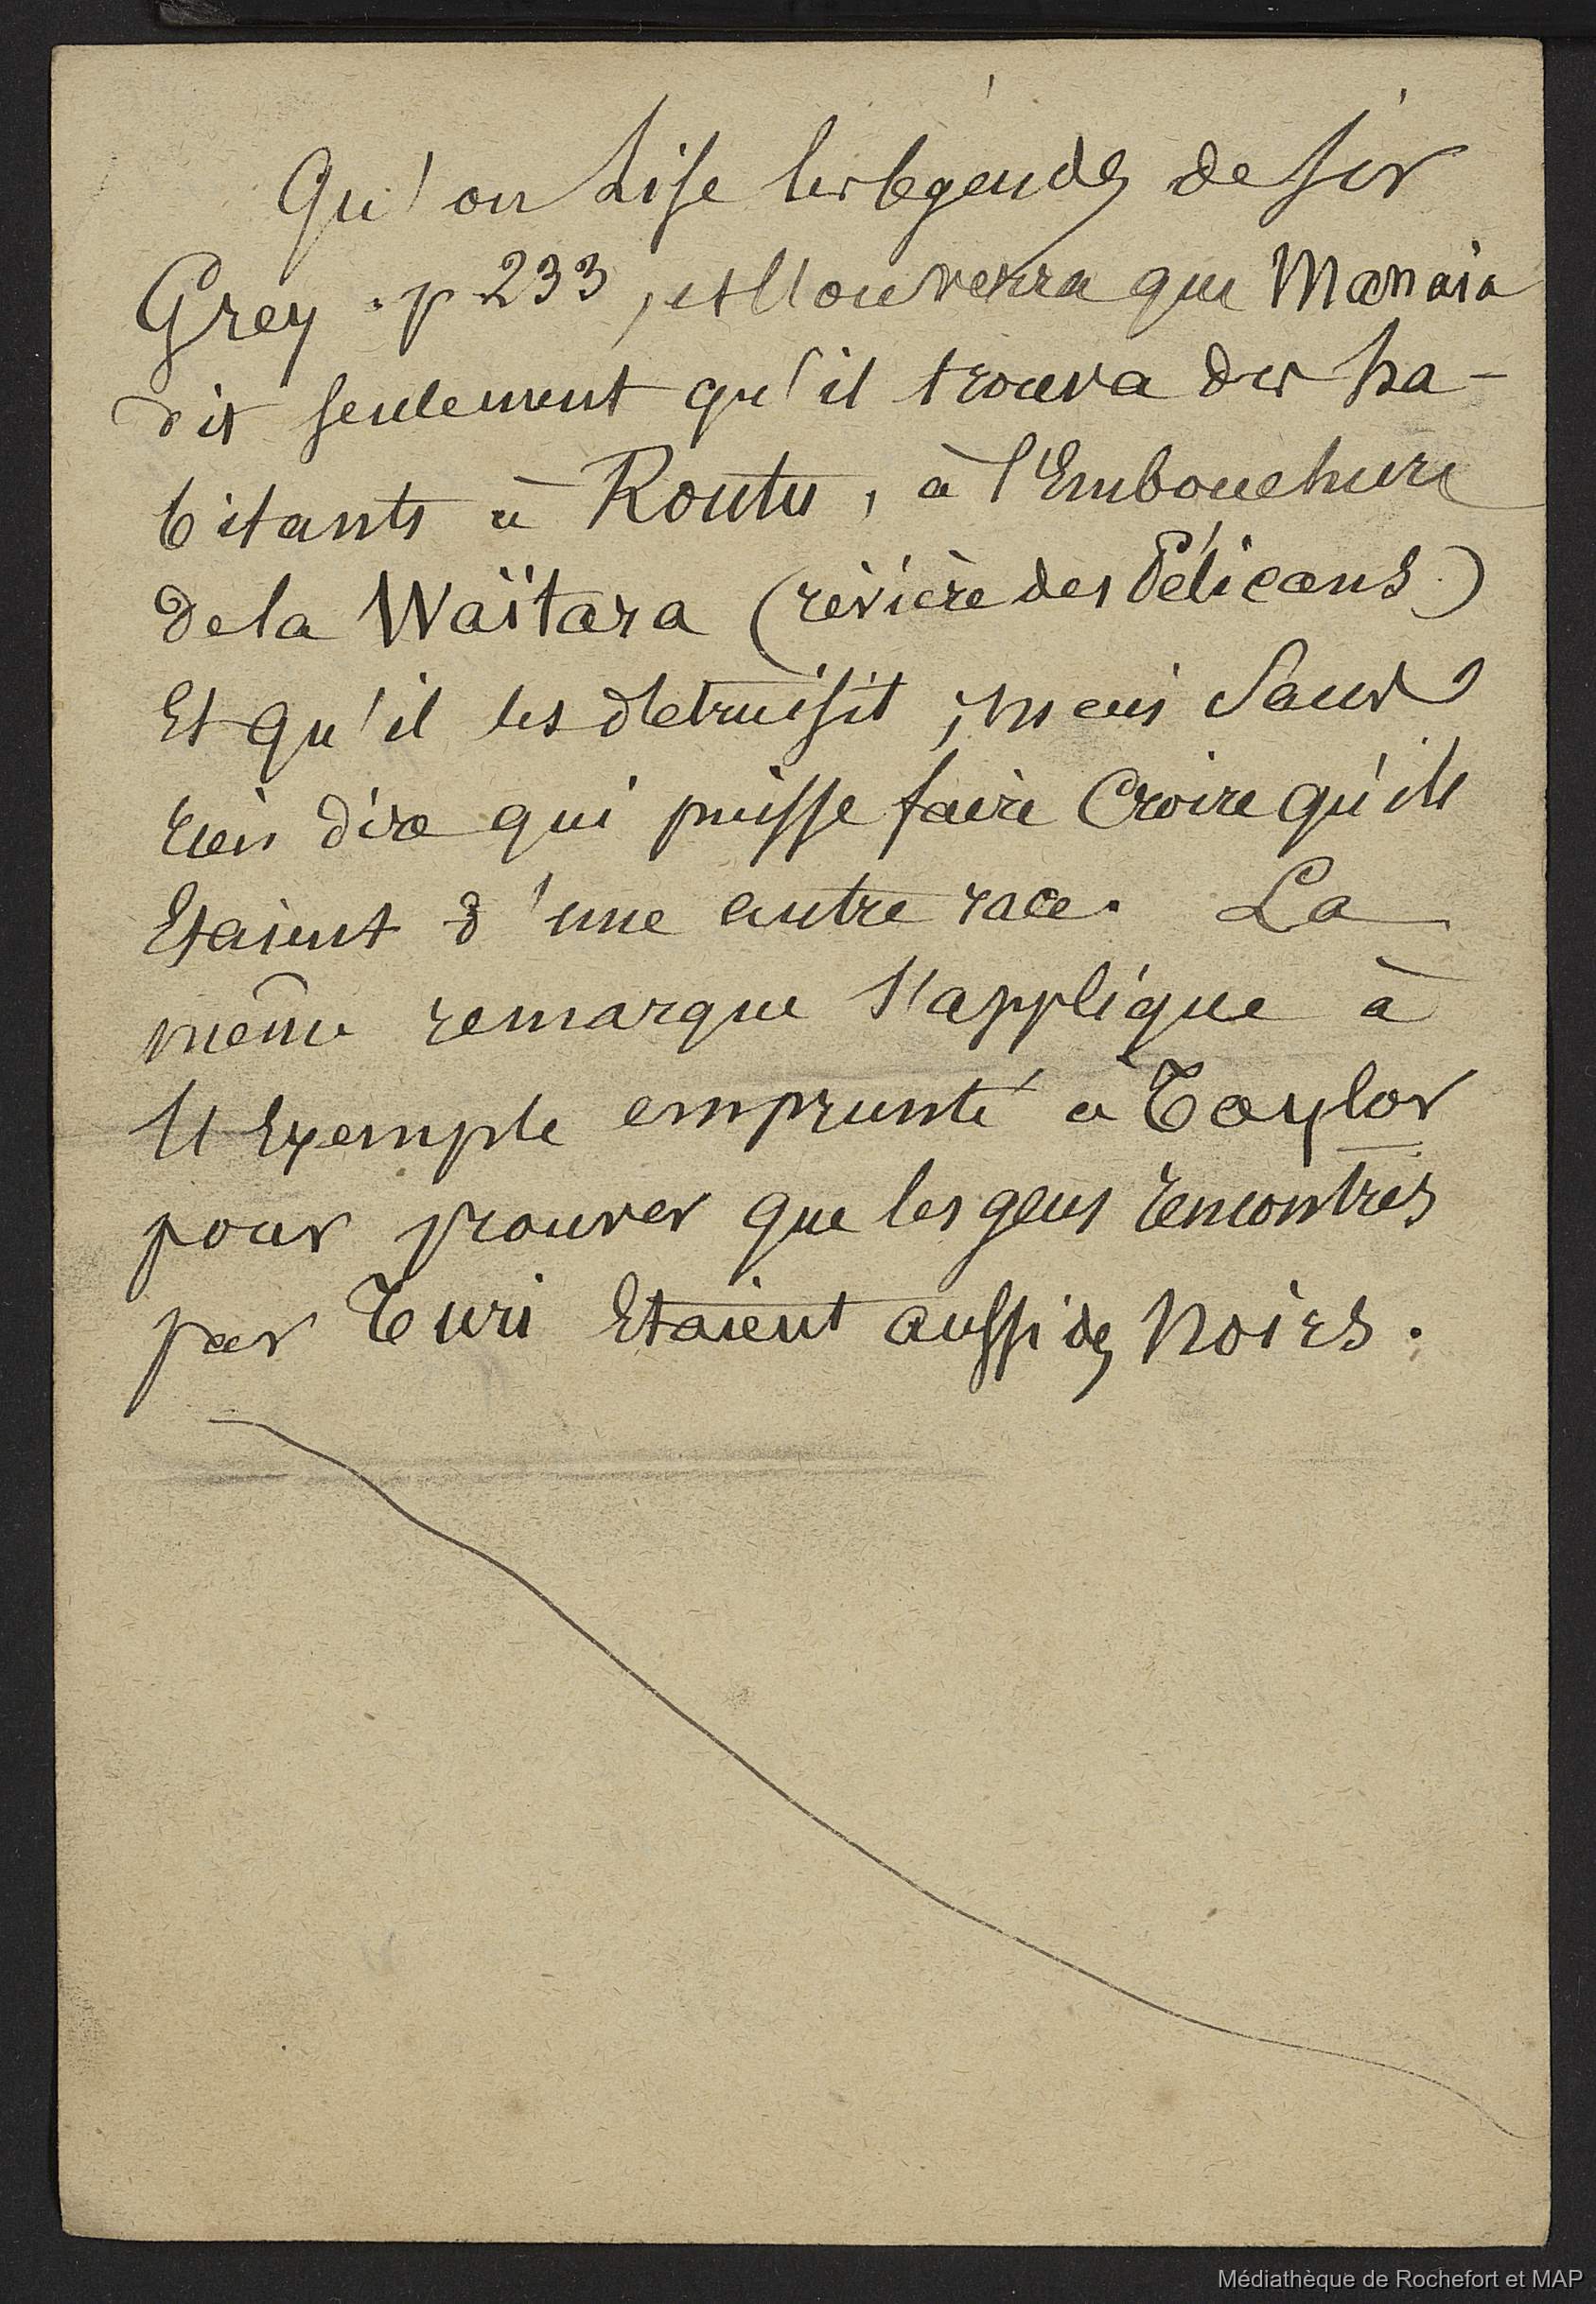 Qu'on Lise les légendes de Sir
Grey . p 233, et l'on verra que Manaia
dit seulement qu'il trouva des ha-
bitants à Routu, à l'Embouchure
de la Waïtara (rivière des Pélicans)
Et qu'il les detruisit ; mais Sans
rien dire qui puisse faire Croire qu'ils
Etaient d'une autre race. La
même remarque s'applique à
l'Exemple emprunté à Taylor
pour prouver que les gens rencontrés
par Turi Etaient aussi des Noirs.
Médiathèque de Rochefort et MAP